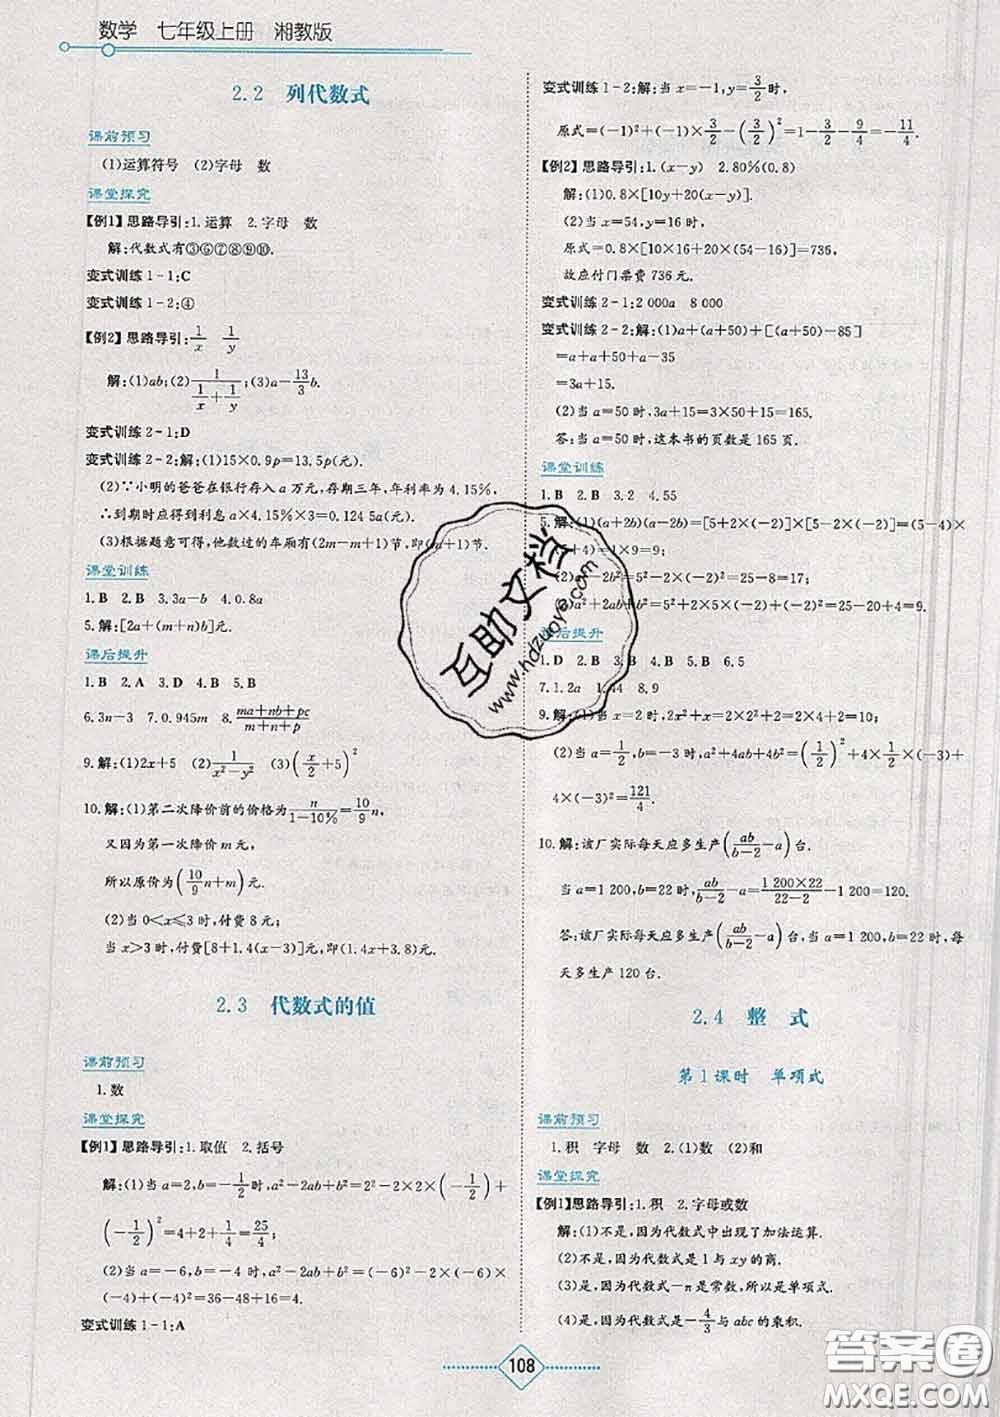 数学 七年级上册 湘教版
2.2 列代数式
课前预习
(1)运算符号 (2)字母 数
课堂探究
【例1】思路导引:1.运算 2.字母 数
解:代数式有③⑥⑦⑧⑨⑩.
变式训练1-1:C
变式训练1-2:④
【例2】思路导引:1/x 1/y
解:(1)ab;(2)1/(1/x+1/y);(3)a-13/3 b.
变式训练2-1:D
变式训练2-2:解:(1)15×0.9p=13.5p(元).
(2)∵小明的爸爸在银行存入a万元,存期三年,年利率为4.15%,
∴到期时应得到利息a×4.15%×3=0.124 5a(元).
(3)根据题意可得,他数过的车厢有(2m-m+1)节,即(m+1)节.
课堂训练
1.B 2.B 3.3a-b 4.0.8a
5.解:[2a+(m+n)b]元.
课后提升
1.B 2.A 3.D 4.B 5.B
6.3n-3 7.0.945m 8.(ma+nb+pc)/(m+n+p)
9.解:(1)2x+5 (2)1/(x²-y²) (3)(x/2+5)²
10.解:(1)第二次降价前的价格为n/(1-10%)=10/9 n,
又因为第一次降价m元,
所以原价为(10/9 n+m)元.
(2)当0<x≤3时,付费8元;
当x>3时,付费[8+1.4(x-3)]元,即(1.4x+3.8)元.
2.3 代数式的值
课前预习
1.数
课堂探究
【例1】思路导引:1.取值 2.括号
解:(1)当a=2,b=-1/2时,a²-2ab+b²=2²-2×2×(-1/2)+
(-1/2)²=4+2+1/4=25/4;
(2)当a=-6,b=-4时,a²-2ab+b²=(-6)²-2×(-6)×
(-4)+(-4)²=36-48+16=4.
变式训练1-1:A
变式训练1-2:解:当x=-1,y=3/2时,
原式=(-1)²+(-1)×3/2-(3/2)²=1-3/2-9/4=-11/4.
【例2】思路导引:1.(x-y) 2.80%(0.8)
解:(1)0.8×[10y+20(x-y)].
(2)当x=54,y=16时,
原式=0.8×[10×16+20×(54-16)]=736,
故应付门票费736元.
变式训练2-1:2 000a 8 000
变式训练2-2:解:(1)a+(a+50)+[(a+50)-85]
=a+a+50+a-35
=3a+15.
(2)当a=50时,3a+15=3×50+15=165.
答:当a=50时,这本书的页数是165页.
课堂训练
1.B 2.B 3.2 4.55
5.解:(1)(a+2b)(a-2b)=[5+2×(-2)]×[5-2×(-2)]=(5-4)×
(5+4)=1×9=9;
(2)a²-2b²=5²-2×(-2)²=25-8=17;
(3)a²+2ab+b²=5²+2×5×(-2)+(-2)²=25-20+4=9.
课后提升
1.D 2.B 3.D 4.B 5.B 6.5
7.1.2a 1.44 8.9
9.解:(1)当x=2时,2x²+x=2×2²+2=2×4+2=10;
(2)当a=1/2,b=-3时,a²+4ab+4b²=(1/2)²+4×1/2×(-3)+
4×(-3)²=121/4.
10.解:该厂实际每天应多生产(ab/(b-2)-a)台.
当a=1 200,b=22时,ab/(b-2)-a=(1 200×22)/(22-2)-1 200=120.
答:该厂实际每天应多生产(ab/(b-2)-a)台,当a=1 200,b=22时,每
天多生产120台.
2.4 整式
第1课时 单项式
课前预习
1.积 字母 数 2.(1)数 (2)和
课堂探究
【例1】思路导引:1.积 2.字母或数
解:(1)不是,因为代数式中出现了加法运算.
(2)不是,因为代数式是1与xy的商.
(3)是,因为代数式-π是常数,所以是单项式.
(4)是,因为代数式是-4/3与abc的乘积.
108
互助文档
www.hdzuoye.com
答案圈
MXQE.COM